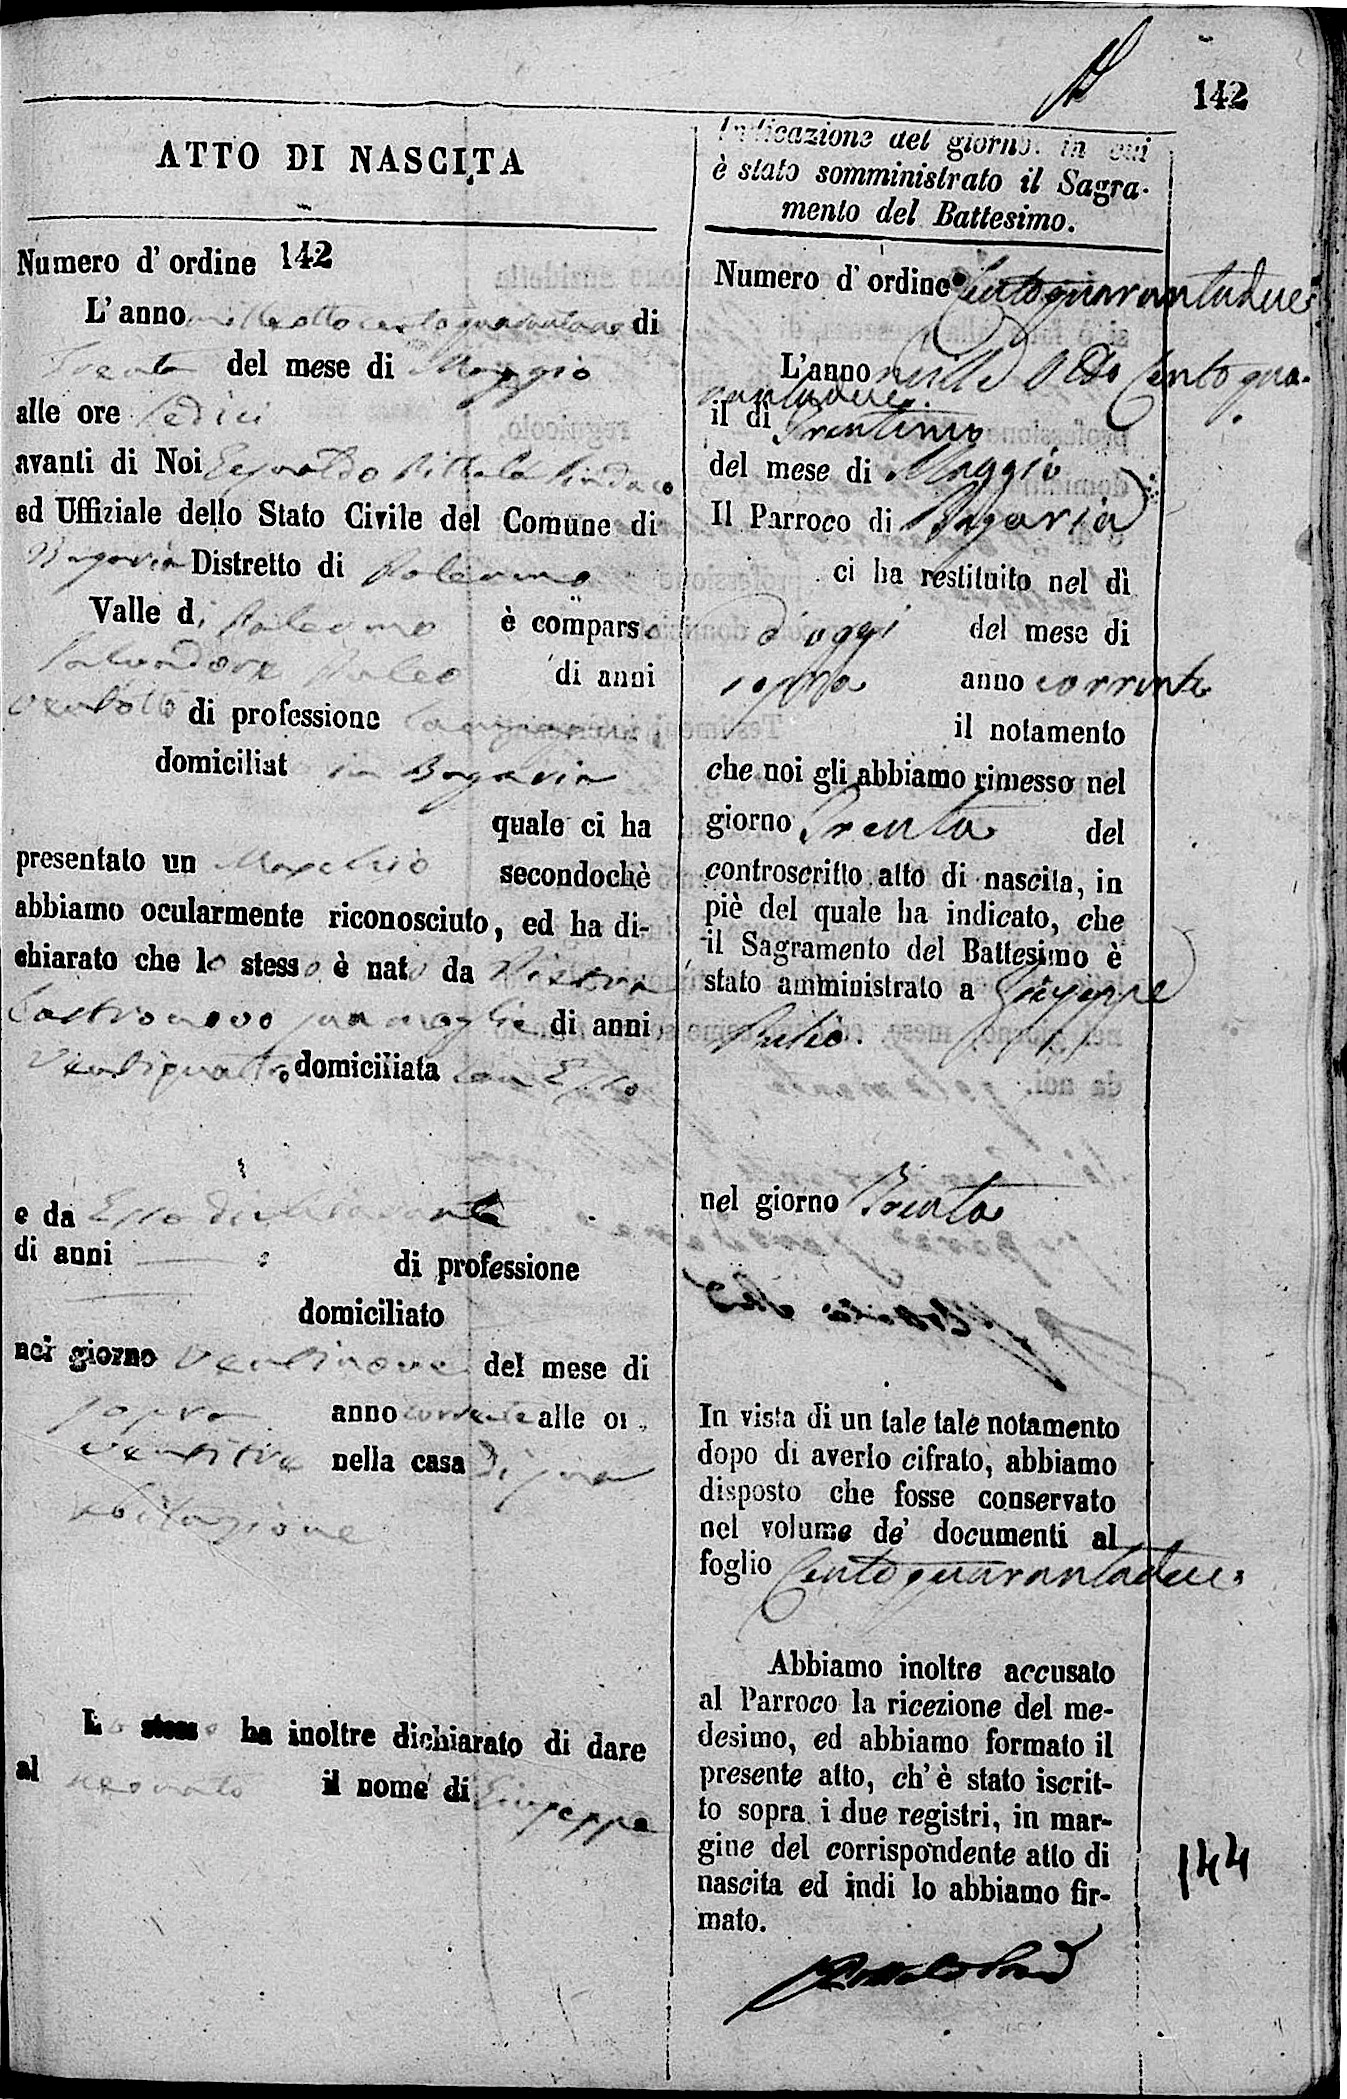 142
ATTO DI NASCITA
Numero d' ordine 142
L' anno milleottocentoquarantadue di
Trenta del mese di Maggio
alle ore Sedici
avanti di Noi Pittalà Sindaco
ed Uffiziale dello Stato Civile del Comune di
Bagaria Distretto di Palermo
Valle di Palermo è comparso
Salvadore Puleo di anni
ventotto di professione
domiciliat in Bagaria
quale ci ha
presentato un Maschio secondochè
abbiamo ocularmente riconosciuto, ed ha di-
chiarato che lo stesso è nato da
Castronovo sua moglie di anni
Ventiquattro domiciliata con Esso
e da Esso dichiarante
di anni di professione
domiciliato
nel giorno ventinove del mese di
sopra anno corrente alle or
ventitre nella casa di sua
abitazione
Lo stesso ha inoltre dichiarato di dare
al neonato il nome di Giuseppe
Indicazione del giorno in cui
è stato somministrato il Sagra-
mento del Battesimo.
Numero d' ordine Centoquarantadue
L'anno mille Otto Cento qua-
rantadue
il dì Trentuno
del mese di Maggio
Il Parroco di Bagaria
ci ha restituito nel dì
d'oggi del mese di
sopra anno corrente
il notamento
che noi gli abbiamo rimesso nel
giorno Trenta del
controscritto atto di nascita, in
piè del quale ha indicato, che
il Sagramento del Battesimo è
stato amministrato a Giuseppe
Puleo.
nel giorno Trenta
In vista di un tale tale notamento
dopo di averlo cifrato, abbiamo
disposto che fosse conservato
nel volume de' documenti al
foglio Centoquarantadue
Abbiamo inoltre accusato
al Parroco la ricezione del me-
desimo, ed abbiamo formato il
presente atto, ch' è stato iscrit-
to sopra i due registri, in mar-
gine del corrispondente atto di
nascita ed indi lo abbiamo fir-
mato.
144